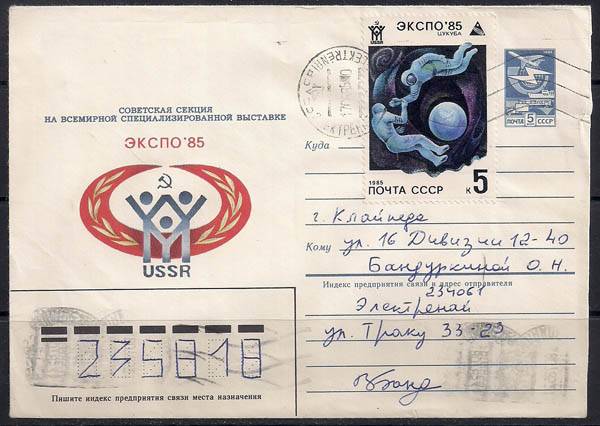 СОВЕТСКАЯ СЕКЦИЯ
НА ВСЕМИРНОЙ СПЕЦИАЛИЗИРОВАННОЙ ВЫСТАВКЕ
ЭКСПО'85
USSR
USSR
ЭКСПО'85
ЦУКУБА
1985
ПОЧТА СССР
к 5
ПОЧТА 5 СССР
Куда
г. Клайпеда
Кому ул. 16 Дивизии 12-40
Бандуркиной О. Н.
Индекс предприятия связи и адрес отправителя
234061
Электренай
ул. Траку 33-23
235818
Пишите индекс предприятия связи места назначения